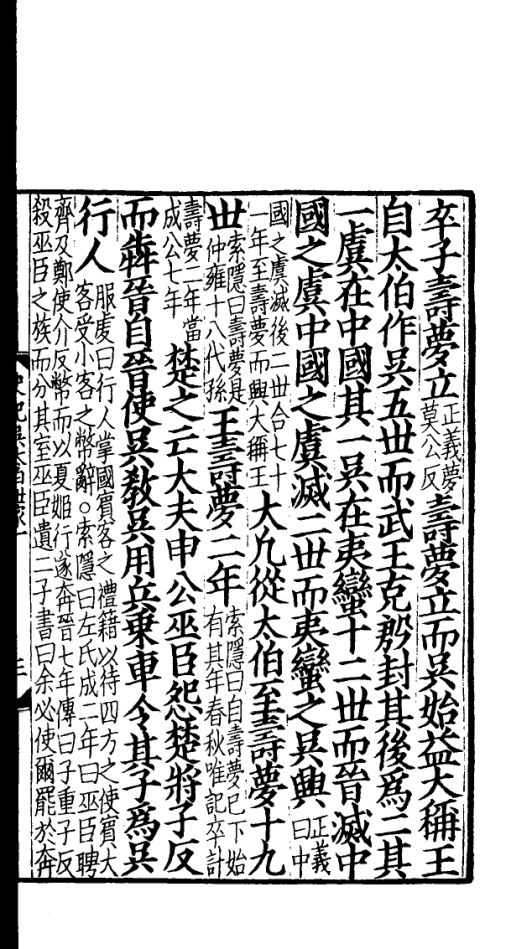 卒子壽夢立正義夢莫公反壽夢立而吳始益大稱王
自太伯作吳五世而武王克殷封其後爲二其
一虞在中國其一吳在夷蠻十二世而晉滅中
國之虞中國之虞滅二世而夷蠻之吳興正義曰中
國之虞滅後二世合七十一年至壽夢而興大稱王大凡從太伯至壽夢十九
世索隱曰壽夢是仲雍十八代孫王壽夢二年索隱曰自壽夢已下始有其年春秋唯記卒計
壽夢二年當成公七年楚之亡大夫申公巫臣怨楚將子反
而犇晉自晉使吳教吳用兵乘車令其子爲吳
行人服虔曰行人掌國賓客之禮籍以待四方之使賓大客受小客之幣辭○索隱曰左氏成二年曰巫臣聘
齊及鄭使介反幣而以夏姬行遂奔晉七年傳曰子重子反
殺巫臣之族而分其室巫臣遺二子書曰余必使爾罷於奔